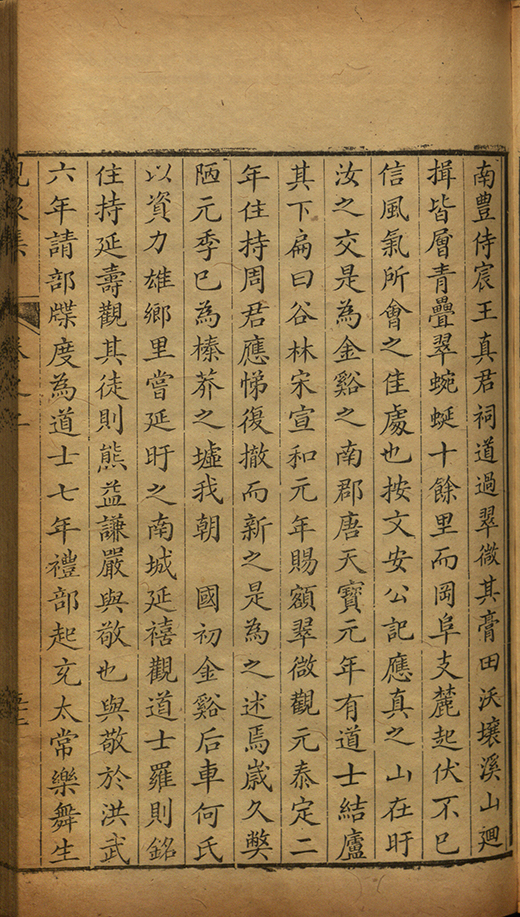 南豊侍宸王真君祠道過翠微其膏田沃壤溪山迴
揖皆層青疊翠蜿蜒十餘里而岡阜支麓起伏不已
信風氣所會之佳處也按文安公記應真之山在盱
汝之交是為金谿之南郡唐天寶元年有道士結廬
其下扁曰谷林宋宣和元年賜額翠微觀元泰定二
年住持周君應悌復撤而新之是為之述焉歳久弊
陋元季已為榛莽之墟我朝　國初金谿后車何氏
以資力雄鄉里嘗延盱之南城延禧觀道士羅則銘
住持延壽觀其徒則熊益謙嚴與敬也與敬於洪武
六年請部牒度為道士七年禮部起充太常樂舞生